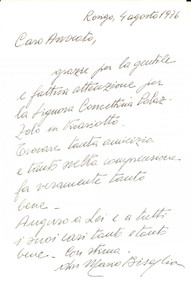 Rongo, 4 agosto 1976
Caro Avvocato,
grazie per la gentile
e fattiva attenzione per
la Signora Concettina
in
Trovare tanta amicizia
e tanta nella comprensione
fa veramente tanto
bene.
Auguro a Lei e a tutti
i suoi cari tanto e tanto
bene. Con stima.
Mario